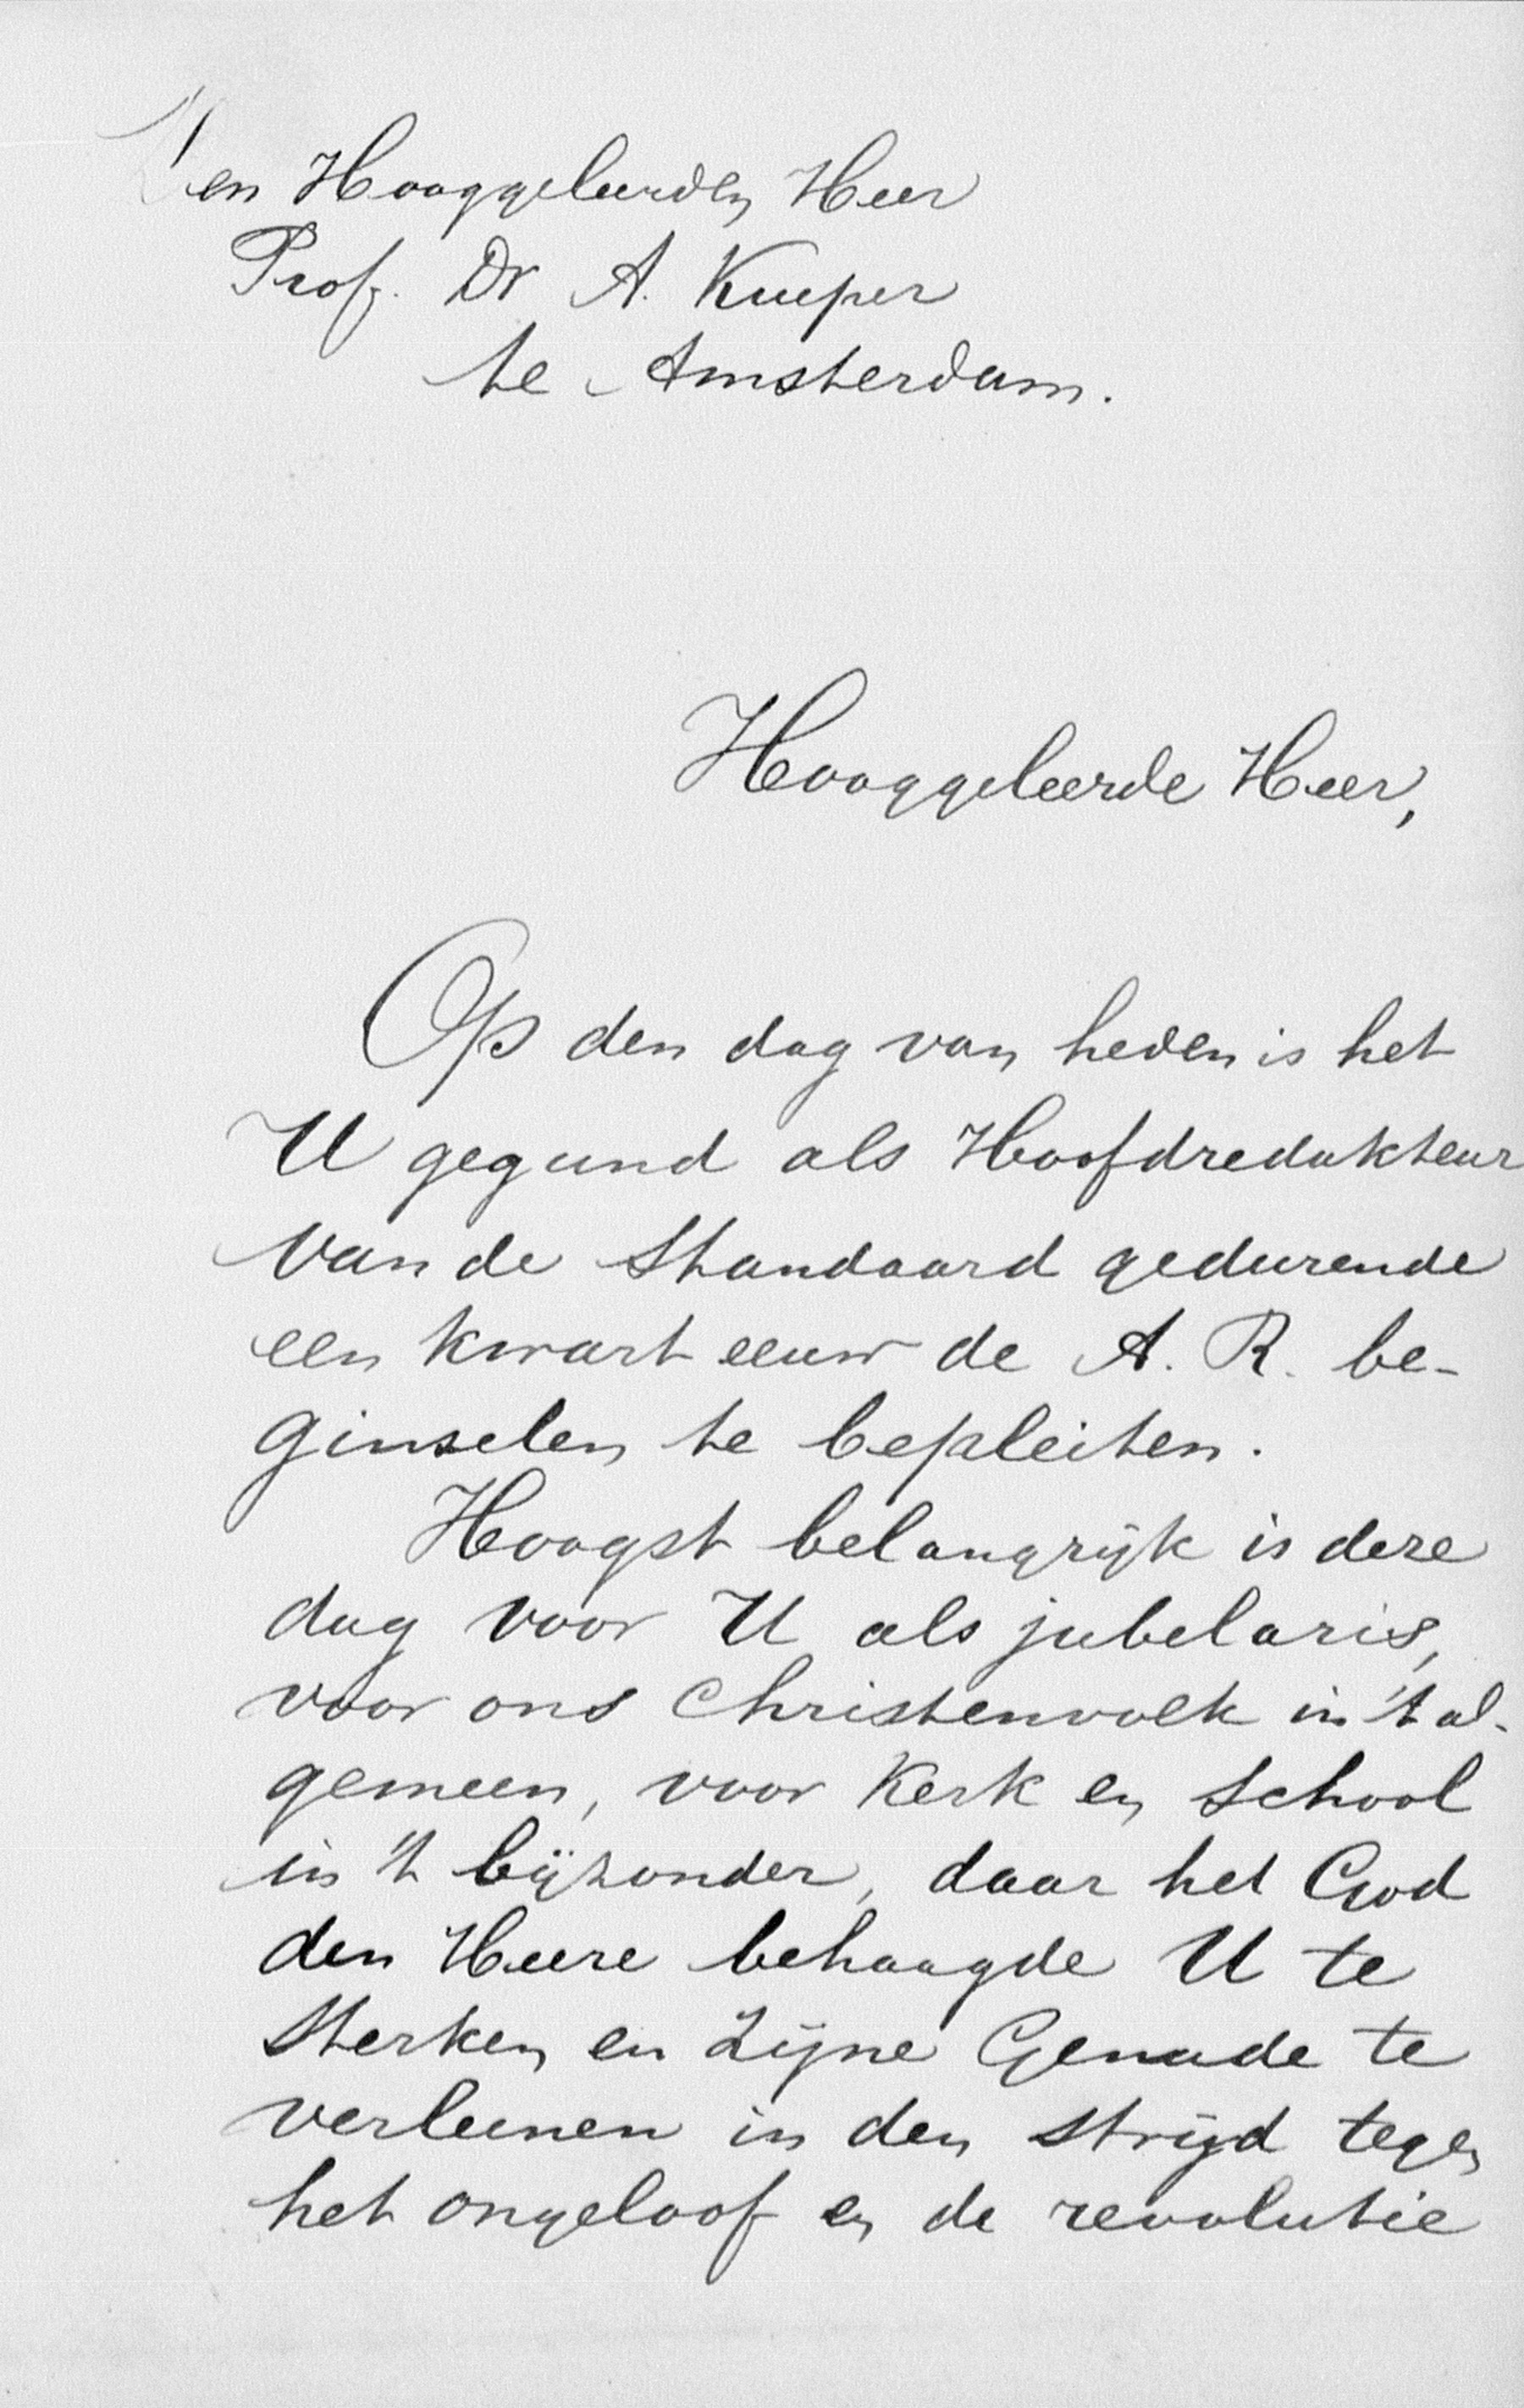 Den Hooggeleerden Heer
Prof. Dr A. Kuyper
te Amsterdam.
Hooggeleerde Heer,
Op den dag van heden is het
U gegund als Hoofdredakteur
van de Standaard gedurende
een kwart eeuw de A. R. be-
ginselen te bepleiten.
Hoogst belangrijk is deze
dag voor U als jubelaris,
voor ons Christenvolk in 't al-
gemeen, voor Kerk en School
in 't bijzonder, daar het God
den Heere behaagde U te
sterken en Zijne Genade te
verleenen in den strijd tegen
het ongeloof en de revolutie